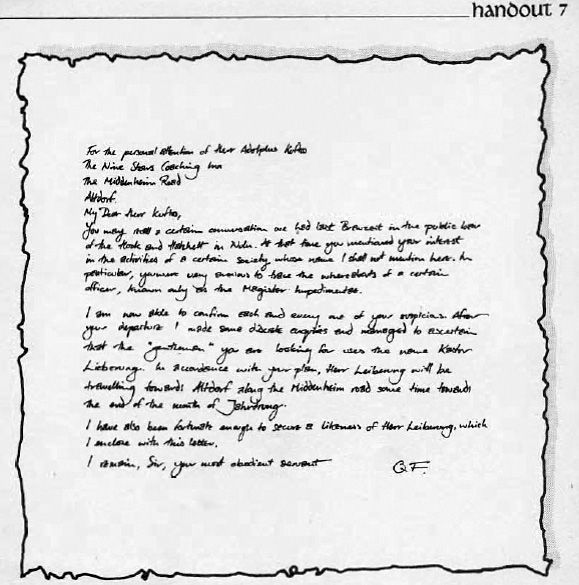 handout 7
For the personal attention of Herr Adolphus Kuftos
The Nine Stars Coaching Inn
The Middenheim Road
Altdorf.
My Dear Herr Kuftos,
You may recall a certain conversation we had last Brauzeit in the public bar
of the Hook and Hatchett in Nuln. At that time you mentioned your interest
in the activities of a certain society whose name I shall not mention here. In
particular, you were very anxious to trace the whereabouts of a certain
officer, known only as the Magister Impedimentae.
I am now able to confirm each and every one of your suspicions. After
your departure I made some discrete enquiries and managed to ascertain
that the "gentleman" you are looking for uses the name Kastor
Lieberung. In accordance with your plan, Herr Leiberung will be
travelling towards Altdorf along the Middenheim road some time towards
the end of the month of Jahrdrung.
I have also been fortunate enough to secure a likeness of Herr Leiberung, which
I enclose with this letter.
I remain, Sir, your most obedient servant
Q F.